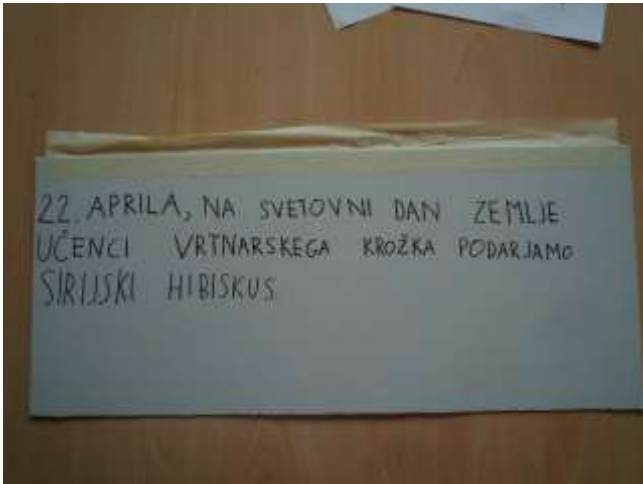 22. APRILA, NA SVETOVNI DAN ZEMLJE
UČENCI VRTNARSKEGA KROŽKA PODARJAMO
SIRIJSKI HIBISKUS